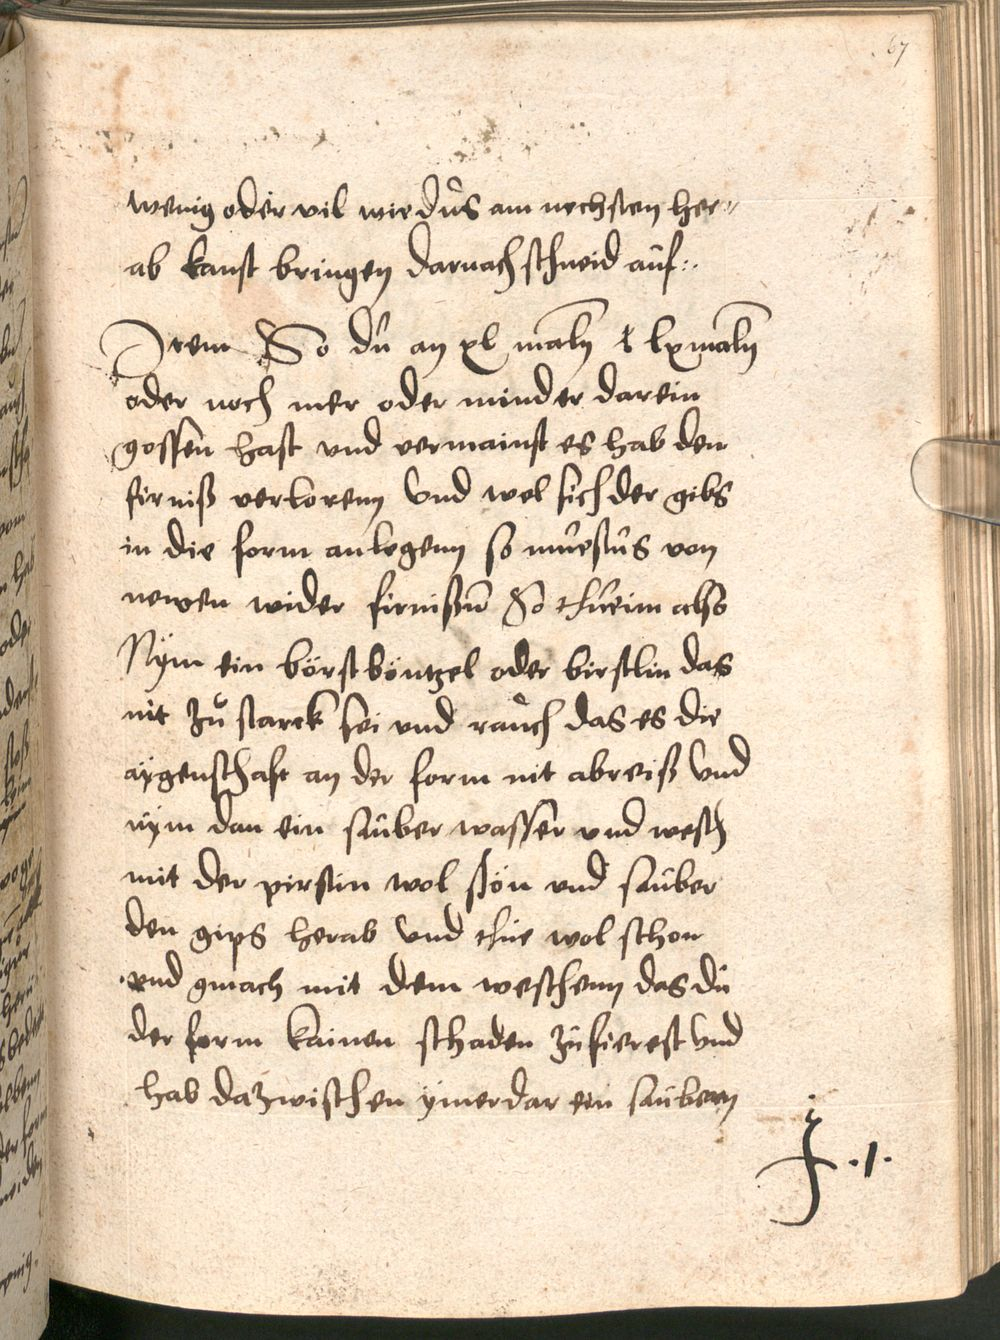 67
wenig oder vil wie dus am nechsten her⸗
ab kanst bringen darnach schneid auf :.
Item So du an xl maln lxmaln
oder noch mer oder minder darein
gossen hast vnd vermainst es hab den
firniß verlorenn Vnd wel sich der gibs
in die form anlegenn so muestus von
newen wider firnißn So thueim also
Nÿm ein börst böntzel oder birstlin das
nit zů starck sei vnd rauch das es die
aÿgenschafft an der form nit abreiß Vnd
nÿm dan ein sauber wasser vnd wesch
mit der pirstin wol schön vnd sauber
den gips herab Vnd thue wol schon
vnd gmach mit dem weschenn das du
der form kainen schaden zufierest Vnd
hab dazwischen ÿmerdar ein saubern
.1.